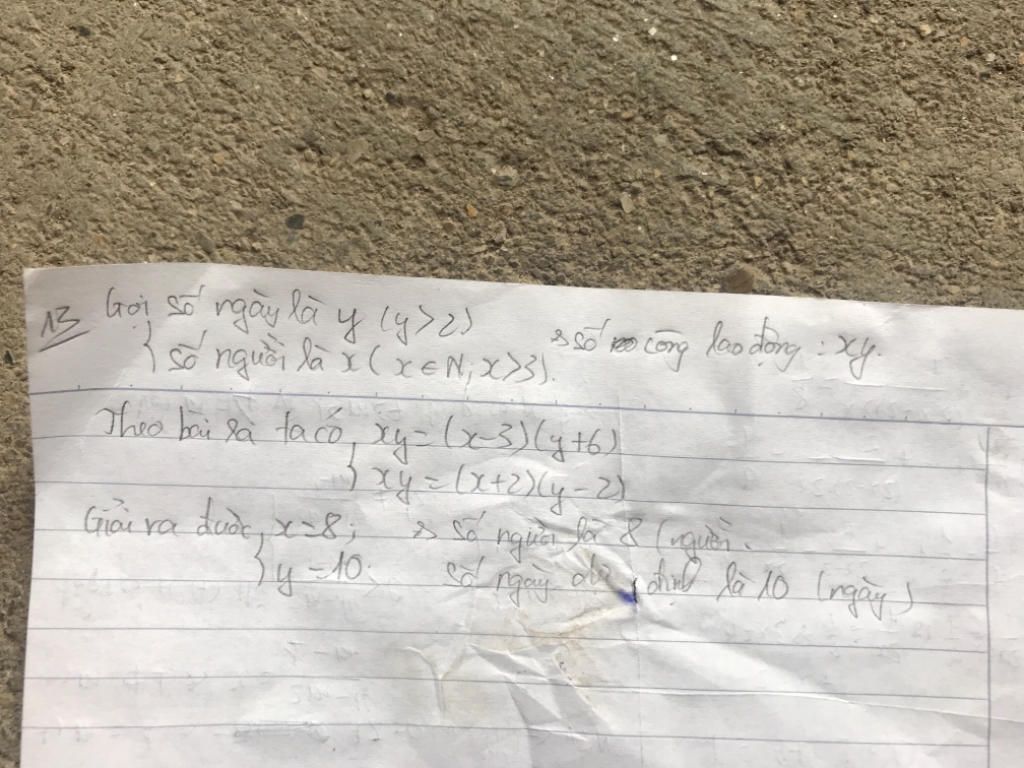 13 Gọi số ngày là y (y>2)
{ số người là x ( x ∈ N; x>3). → số công lao động : xy.
Theo bài ra ta có { xy = (x-3)(y+6)
xy = (x+2)(y-2)
Giải ra được { x=8; → số người là 8 (người.
y = 10. số ngày dự định là 10 (ngày)